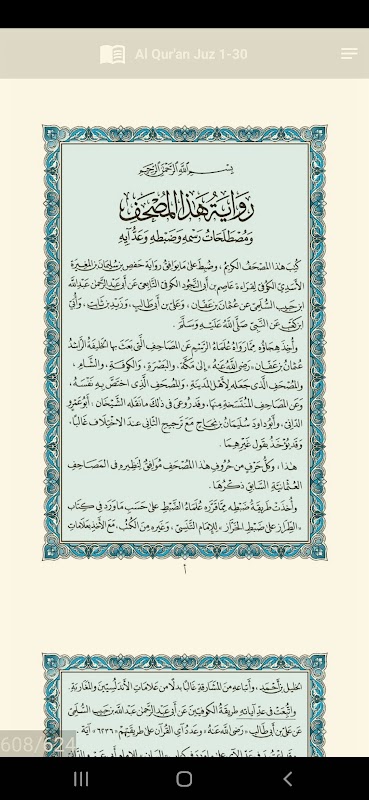 Al Qur'an Juz 1-30
بِسْمِ اللَّهِ الرَّحْمَنِ الرَّحِيمِ
رِوَايَةُ هَذَا المُصْحَفِ
وَمُصْطَلَحَاتُ رَسْمِهِ وَضَبْطِهِ وَعَدِّ آيِهِ
كُتِبَ هذا المُصْحَفُ الكَرِيمُ ، وضُبِطَ على مَا يوافِقُ رِوَايَةَ حَفْصِ بنِ سُلَيْمَانَ بنِ المُغِيرَةِ
الأَسَدِيِّ الكُوفِيِّ لِقِراءَةِ عَاصِمِ بنِ أبي النَّجُودِ الكُوفِيِّ التَّابِعِيِّ عن أبي عَبْدِ الرَّحْمنِ عَبْدِ اللَّهِ
ابنِ حَبِيبٍ السُّلَمِيِّ عن عُثْمَانَ بنِ عَفَّانَ ، وَعَلِيِّ بنِ أَبي طَالِبٍ ، وَزَيْدِ بنِ ثَابِتٍ ، وَأُبَيِّ
ابنِ كَعْبٍ عن النَّبِيِّ صَلَّى اللَّهُ عَلَيْهِ وَسَلَّمَ .
وأُخِذَ هِجَاؤُه مِمَّا رَوَاهُ عُلَمَاءُ الرَّسْمِ عن المَصَاحِفِ الَّتي بَعَثَ بها الخَلِيفَةُ الرَّاشِدُ
عُثْمَانُ بنُ عَفَّانَ «رضي اللَّهُ عنهُ» إلى مَكَّةَ ، والبَصْرَةِ ، والكُوفَةِ ، والشَّامِ ،
والمُصْحَفِ الَّذي جعله لِأَهْلِ المَدِينَةِ ، والمُصْحَفِ الَّذي اخْتَصَّ بِهِ نَفْسَهُ ،
وَعَنِ المَصَاحِفِ المُنْتَسَخَةِ منها. وقد رُوعِيَ في ذلك مَا نَقَلَهُ الشَّيْخَانِ ، أبو عَمْرٍو
الدَّانِيُّ ، وأبُو دَاودَ سُلَيْمَانُ بنُ نَجَاحٍ مَعَ تَرْجِيحِ الثَّاني عندَ الاخْتِلَافِ غَالِبًا،
وقد يُؤْخَذُ بِقَوْلِ غَيْرِهِمَا .
هذا ، وكلُّ حَرْفٍ مِن حُرُوفِ هذا المُصْحَفِ مُوَافِقٌ لِنَظِيرِهِ في المَصَاحِفِ
العُثْمَانِيَّةِ السَّابِقِ ذِكْرُهَا .
وأُخِذَتْ طَرِيقَةُ ضَبْطِهِ مِمَّا قَرَّرَهُ عُلَمَاءُ الضَّبْطِ على حَسَبِ مَا وَرَدَ في كِتَابِ
«الطِّرَازِ على ضَبْطِ الخَرَّازِ» للإِمامِ التَّنَسِيِّ ، وَغَيْرِهِ مِنَ الكُتُبِ، مَعَ الأَخْذِ بِعَلَامَاتِ
أ
الخَلِيلِ بنِ أَحْمَدَ ، وأَتْبَاعِهِ مِنَ المَشَارِقَةِ غَالِبًا بَدَلًا مِن عَلَامَاتِ الأَنْدَلُسِيِّينَ والمَغَارِبَةِ.
واتُّبِعَتْ في عَدِّ آيَاتِهِ طَرِيقَةُ الكُوفِيِّينَ عَن أَبي عَبْدِ الرَّحْمنِ عَبْدِ اللَّهِ بنِ حَبِيبٍ السُّلَمِيِّ
عَن عَلِيِّ بنِ أَبي طَالِبٍ «رَضي اللَّهُ عنهُ» وعَدَدُ آيِ القُرْآنِ على طَرِيقَتِهِمْ «٦٢٣٦» آيَةً .
608/624